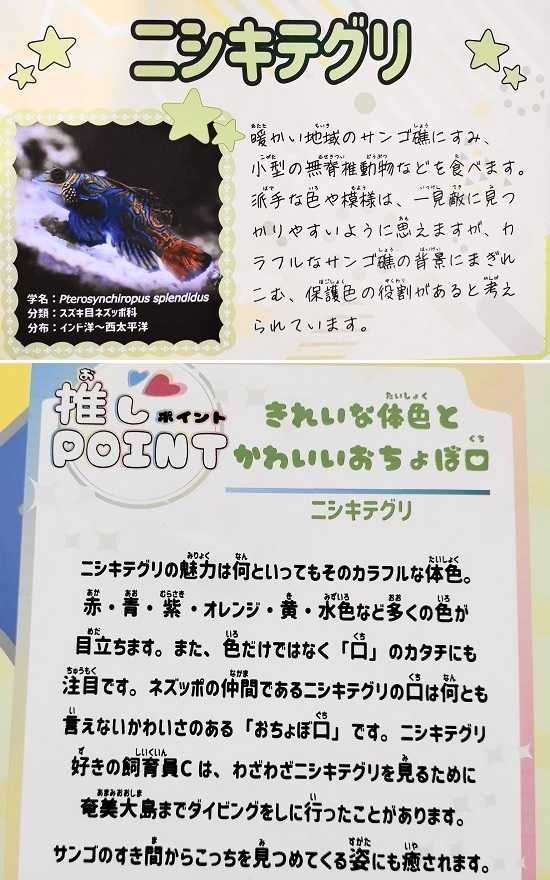 ニシキテグリ
暖かい地域のサンゴ礁にすみ、
小型の無脊椎動物などを食べます。
派手な色や模様は、一見敵に見つ
かりやすいように思えますが、カ
ラフルなサンゴ礁の背景にまぎれ
こむ、保護色の役割があると考え
られています。
学名：Pterosynchiropus splendidus
分類：スズキ目ネズッポ科
分布：インド洋～西太平洋
推しポイント
POINT
きれいな体色と
かわいいおちょぼ口
ニシキテグリ
ニシキテグリの魅力は何といってもそのカラフルな体色。
赤・青・紫・オレンジ・黄・水色など多くの色が
目立ちます。また、色だけではなく「口」のカタチにも
注目です。ネズッポの仲間であるニシキテグリの口は何とも
言えないかわいさのある「おちょぼ口」です。ニシキテグリ
好きの飼育員Cは、わざわざニシキテグリを見るために
奄美大島までダイビングをしに行ったことがあります。
サンゴのすき間からこっちを見つめてくる姿にも癒されます。